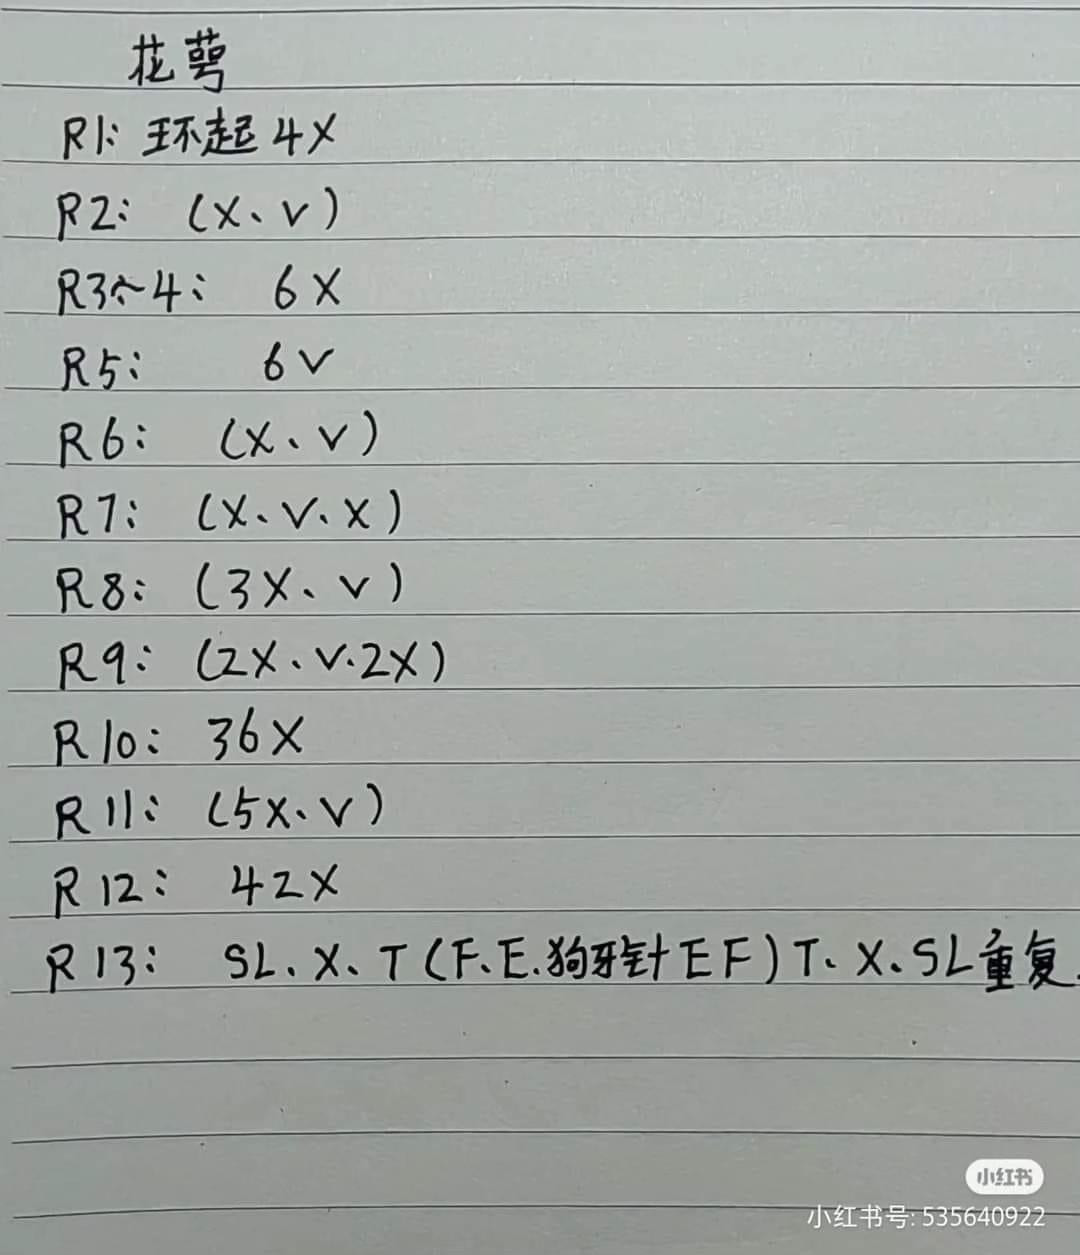 花萼
R1: 环起4X
R2: (X、V)
R3~4: 6X
R5: 6V
R6: (X、V)
R7: (X、V、X)
R8: (3X、V)
R9: (2X、V.2X)
R10: 36X
R11: (5X、V)
R12: 42X
R13: SL、X、T(F、E.狗牙针EF)T、X、SL重复.
小红书
小红书号: 535640922